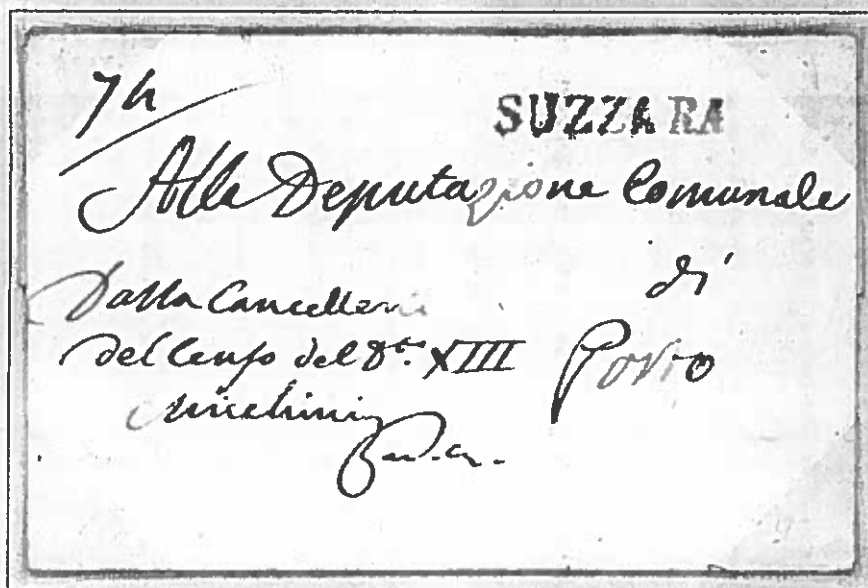 74
SUZZARA
Alla Deputazione Comunale
di
Dalla Cancelleria
del Censo del D.to XIII